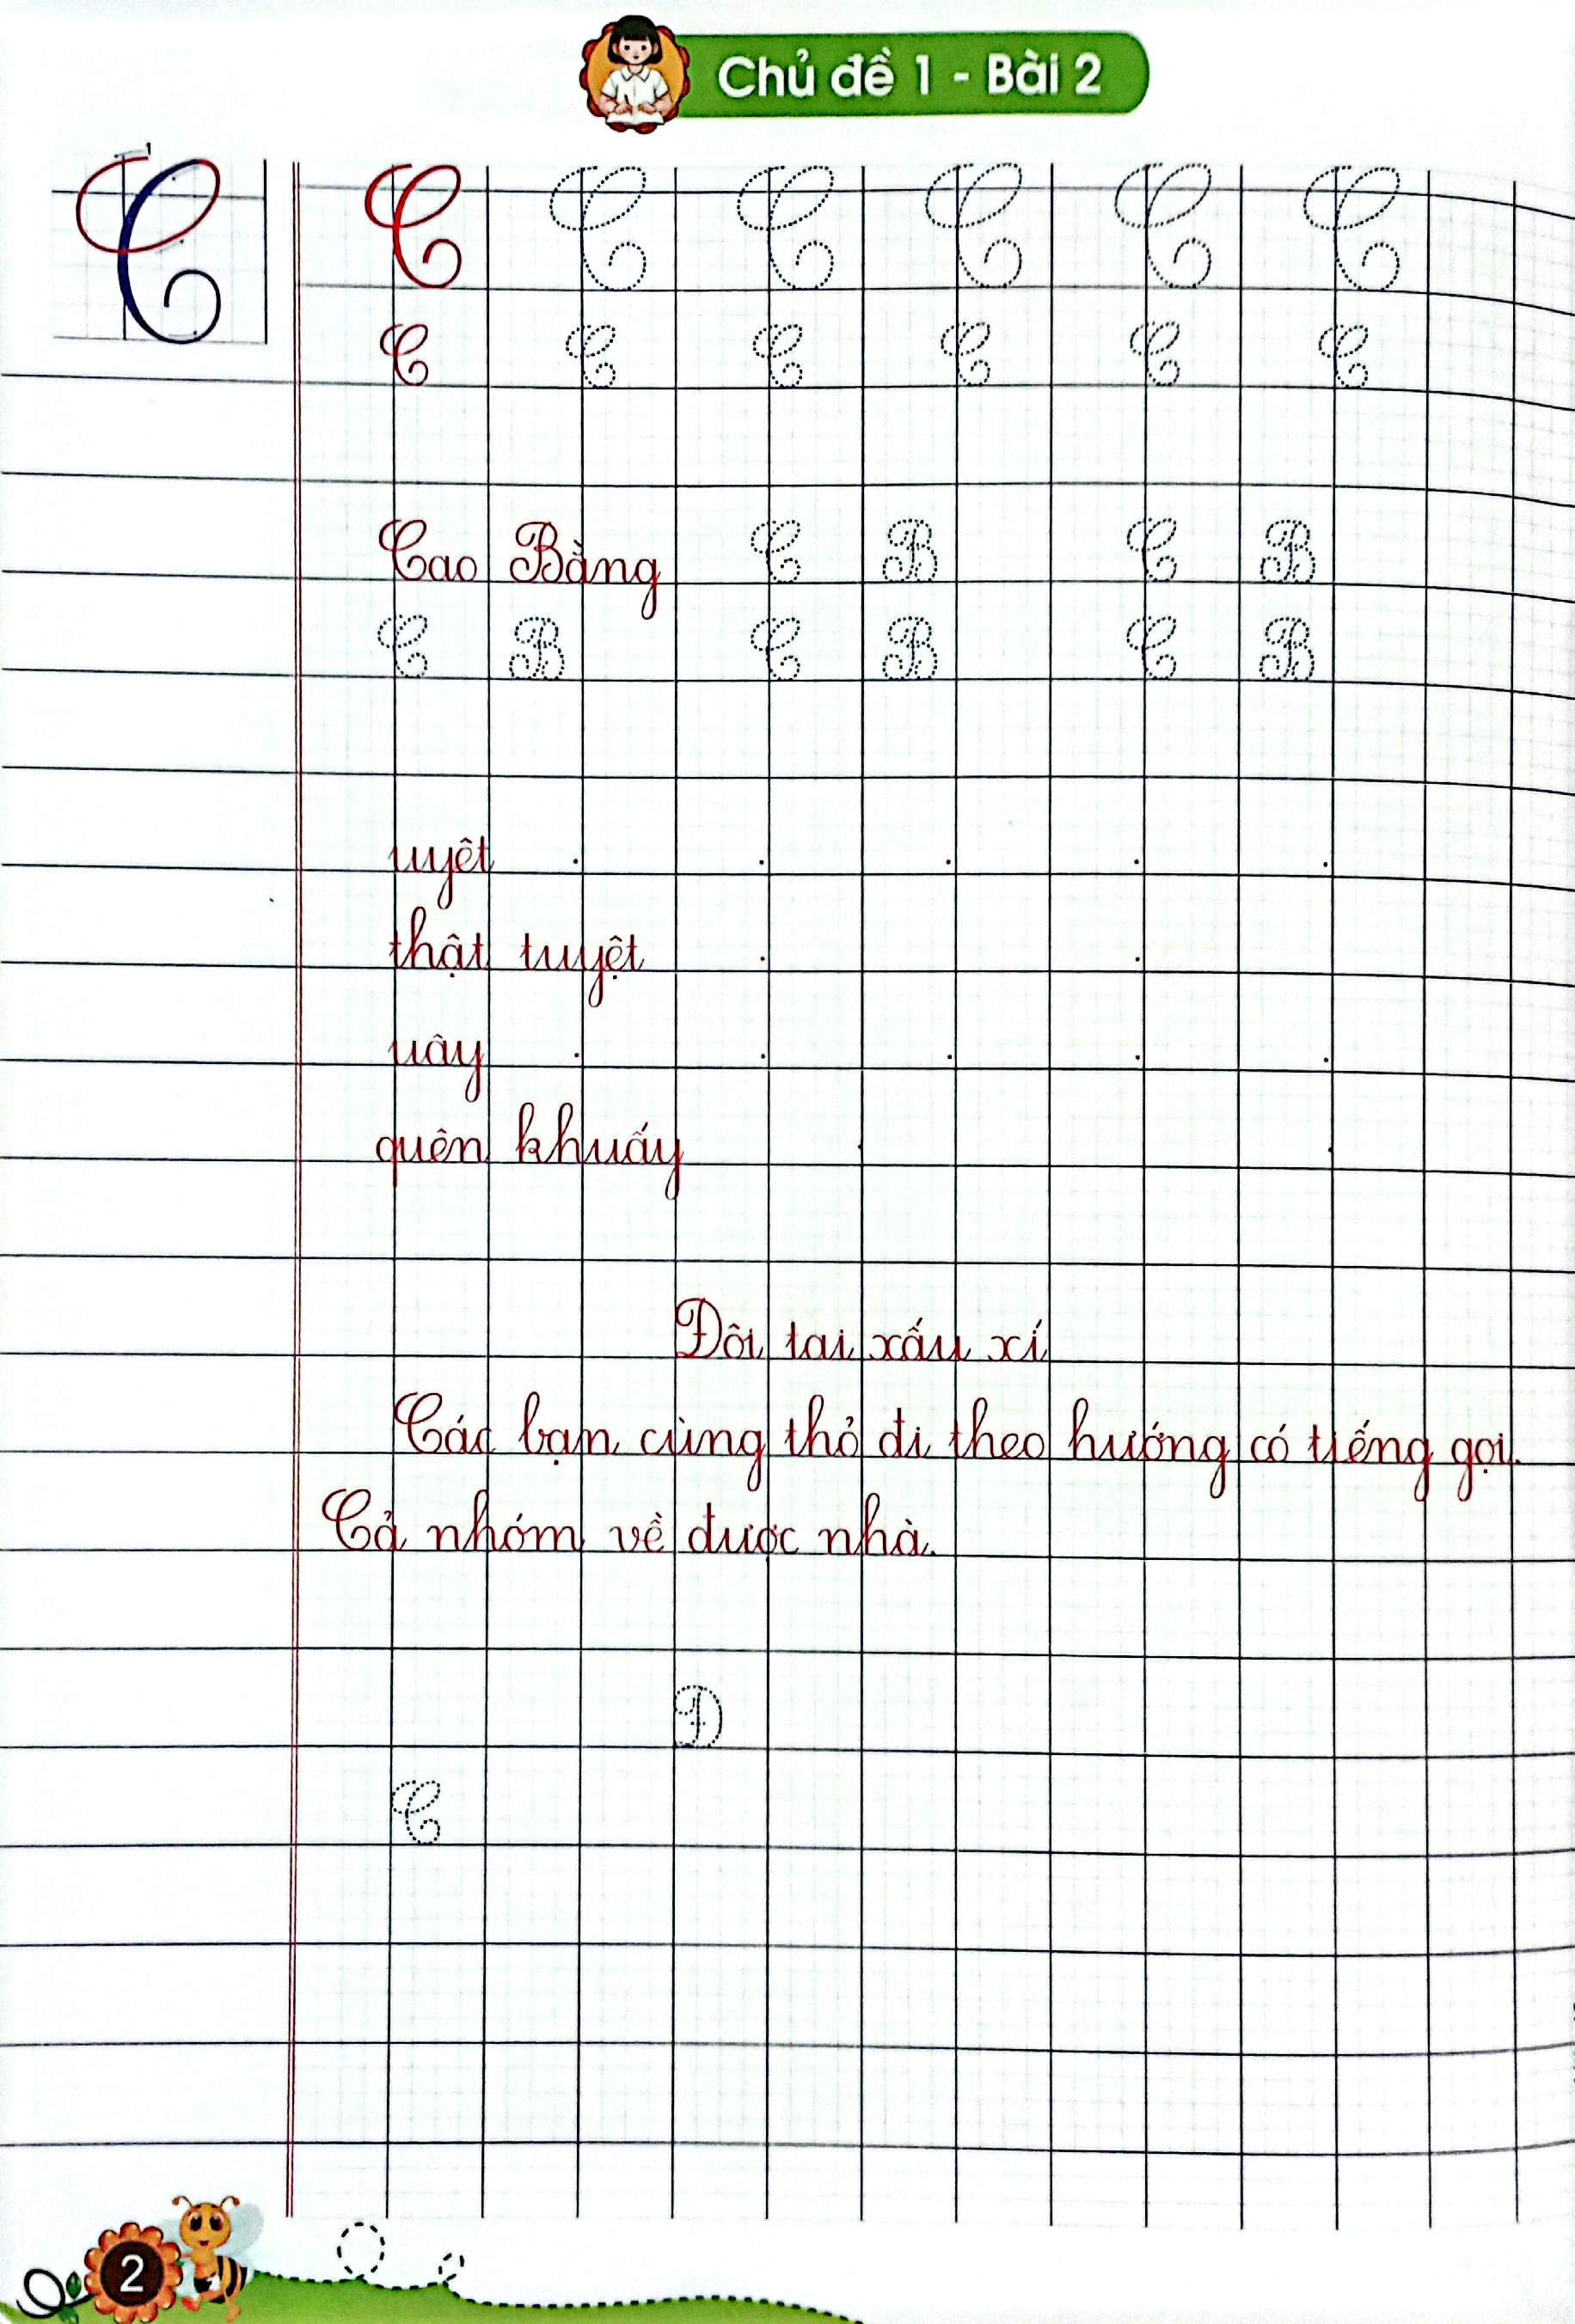 Chủ đề 1 - Bài 2
C C C C C C C
C C C C C C
Cao Bằng C B C B
C B C B C B
uyêt
thật tuyệt
uây
quên khuấy
Đôi tai xấu xí
Các bạn cùng thỏ đi theo hướng có tiếng gọi.
Cả nhóm về được nhà.
Đ
C
2